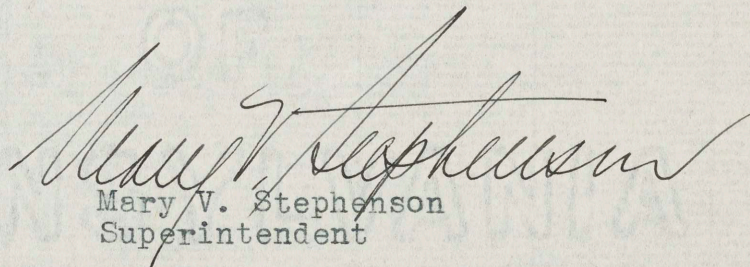 Mary V. Stephenson
Mary V. Stephenson
Superintendent